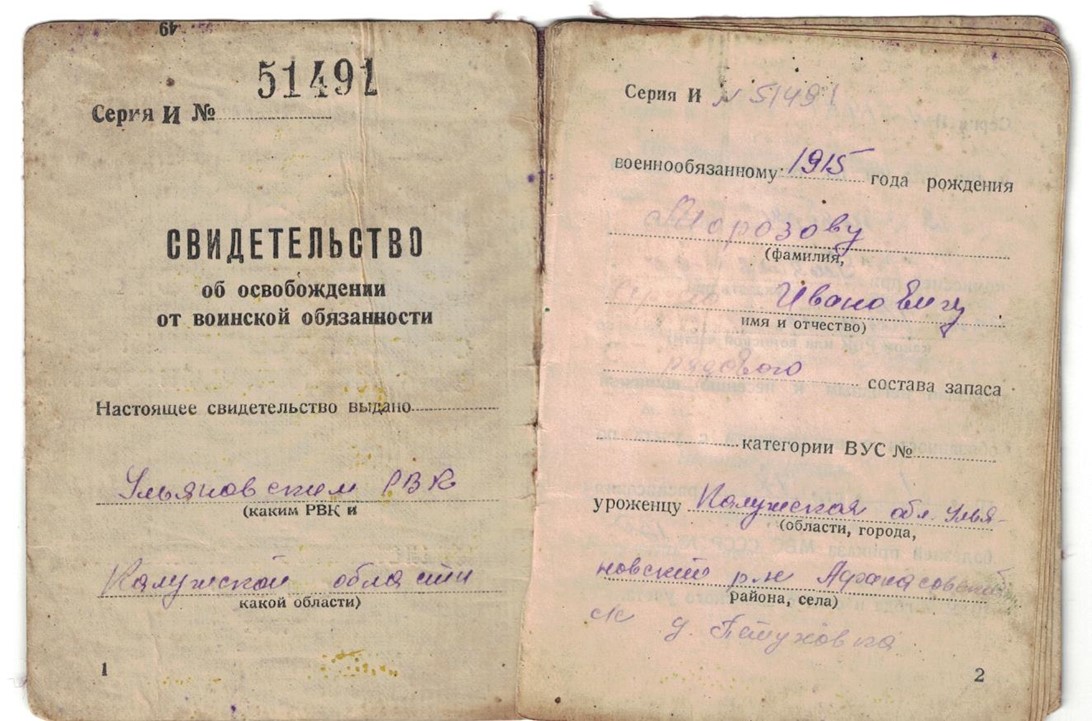 51491
Серия И №
СВИДЕТЕЛЬСТВО
об освобождении
от воинской обязанности
Настоящее свидетельство выдано
Ульяновским РВК
(каким РВК и
Калужской области
какой области)
1
Серия И N 51491
военнообязанному 1915 года рождения
Морозову
(фамилия,
Ивановичу
имя и отчество)
рядового состава запаса
категории ВУС №
уроженцу Калужская обл. Улья-
(области, города,
новский р-н Афанасовский
района, села)
с/с д. Петуховка
2